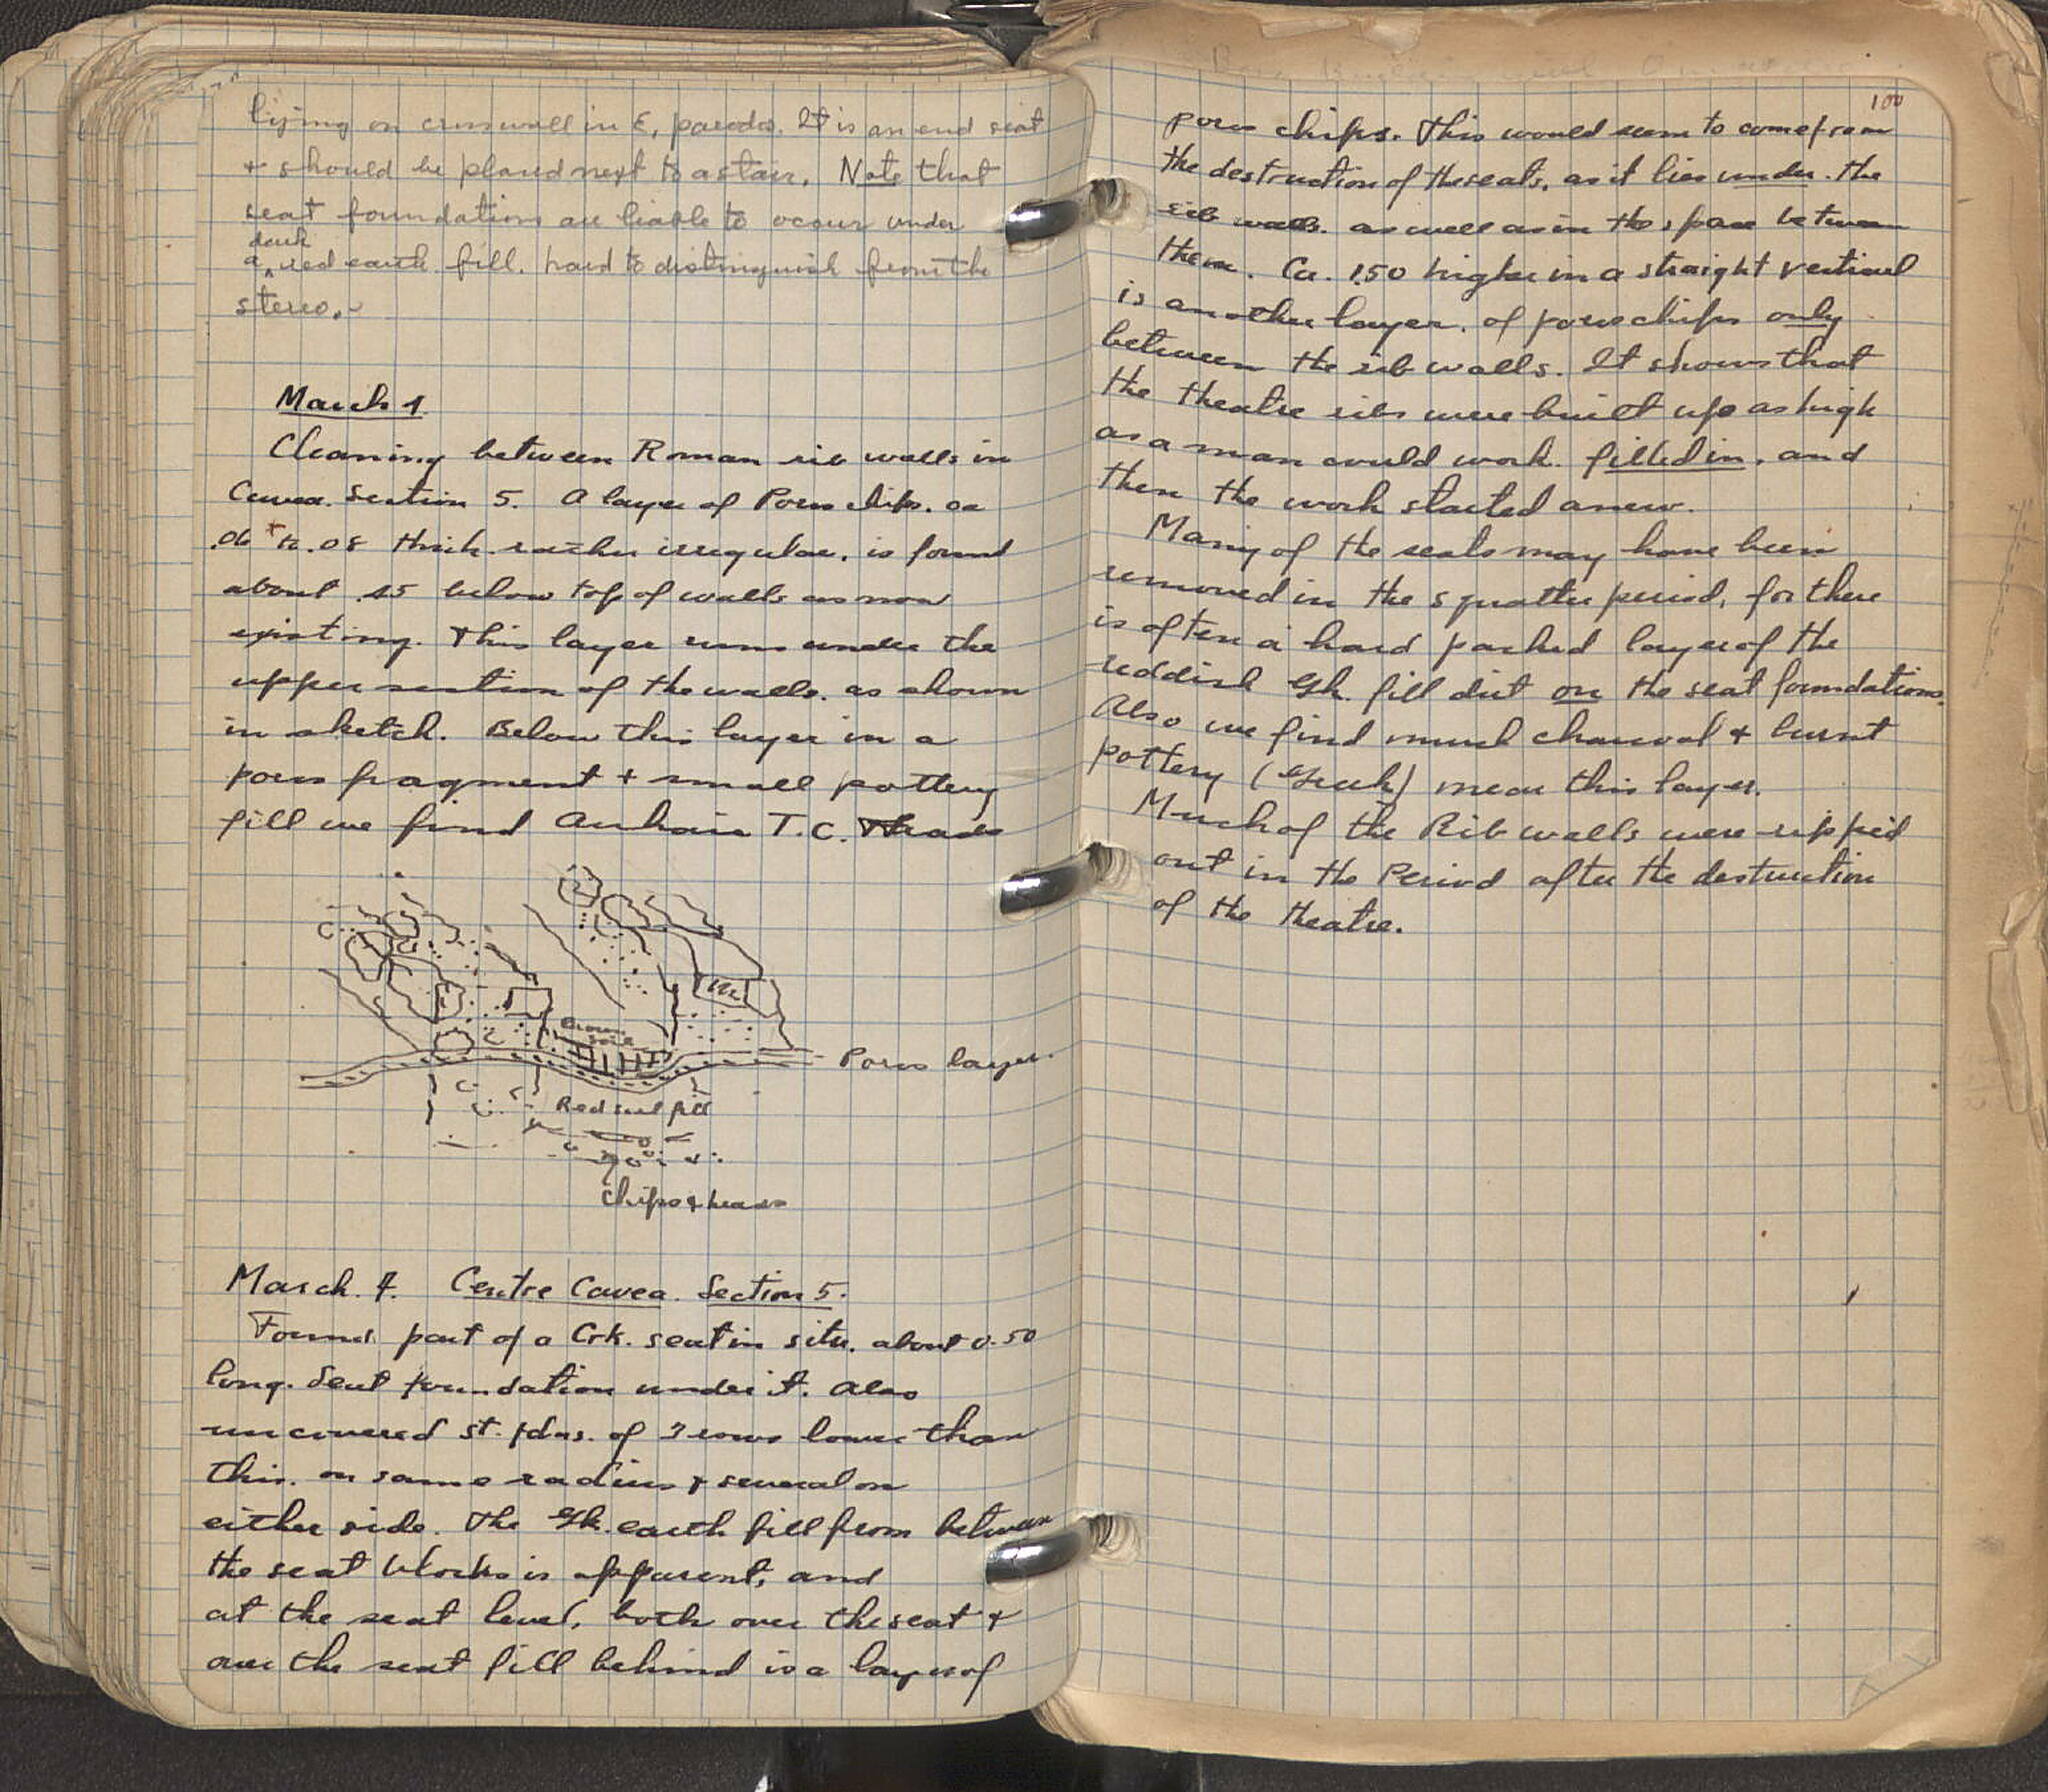 lying on crosswall in E. parodos. It is an end seat
+ should be placed next to a stair. Note that
seat foundations are liable to occur under
dark
a ^ red earth fill. hard to distinguish from the
stereo.
March 1
Cleaning between Roman rib walls in
Cavea. Section 5. A layer of Poros chips. ca
.06 to .08 thick rather irregular, is found
about .45 below top of walls as now
existing. This layer runs under the
upper section of the walls. as shown
in sketch. Below this layer in a
poros fragment + small pottery
fill we find Archaic T.C. Heads
Brown
soil
Poros layer.
Red soil fill
Chips & heads
March. 4. Centre Cavea. Section 5.
Found part of a Grk. seat in situ. about 0.50
long. Seat foundation under it. Also
uncovered st. fdns. of 3 rows lower than
this. on same radius + several on
either side. The Gk. earth fill from between
the seat blocks is apparent, and
at the seat level, both over the seat +
over the seat fill behind is a layer of
100
poros chips. This would seem to come from
the destruction of the seats, as it lies under. the
rib walls. as well as in the space between
them. Ca. 1.50 higher in a straight vertical
is another layer. of poros chips only
between the rib walls. It shows that
the theatre ribs were built up as high
as a man could work. filled in, and
then the work started anew.
Many of the seats may have been
removed in the squatter period, for there
is often a hard packed layer of the
reddish Gk. fill dirt on the seat foundations.
Also we find much charcoal + burnt
pottery (Greek) near this layer.
Much of the Rib walls were ripped
out in the Period after the destruction
of the theatre.